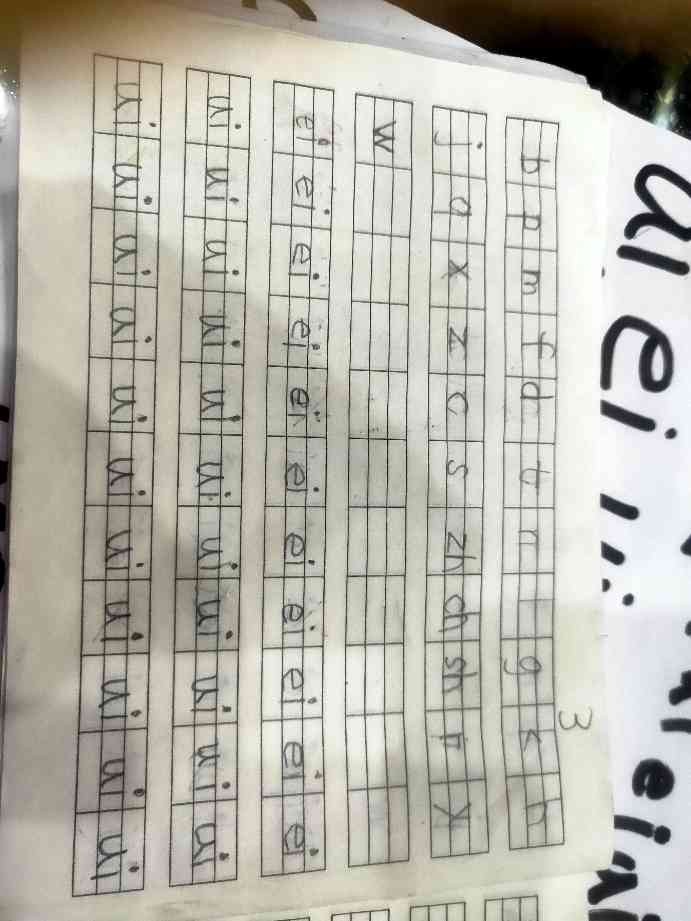 ai ei ui
3
b p m f d t n l g k h
j q x z c s zh ch sh r y
w
ei ei ei ei ei ei ei ei ei ei ei
ui ui ui ui ui ui ui ui ui ui ui
ui ui ui ui ui ui ui ui ui ui ui